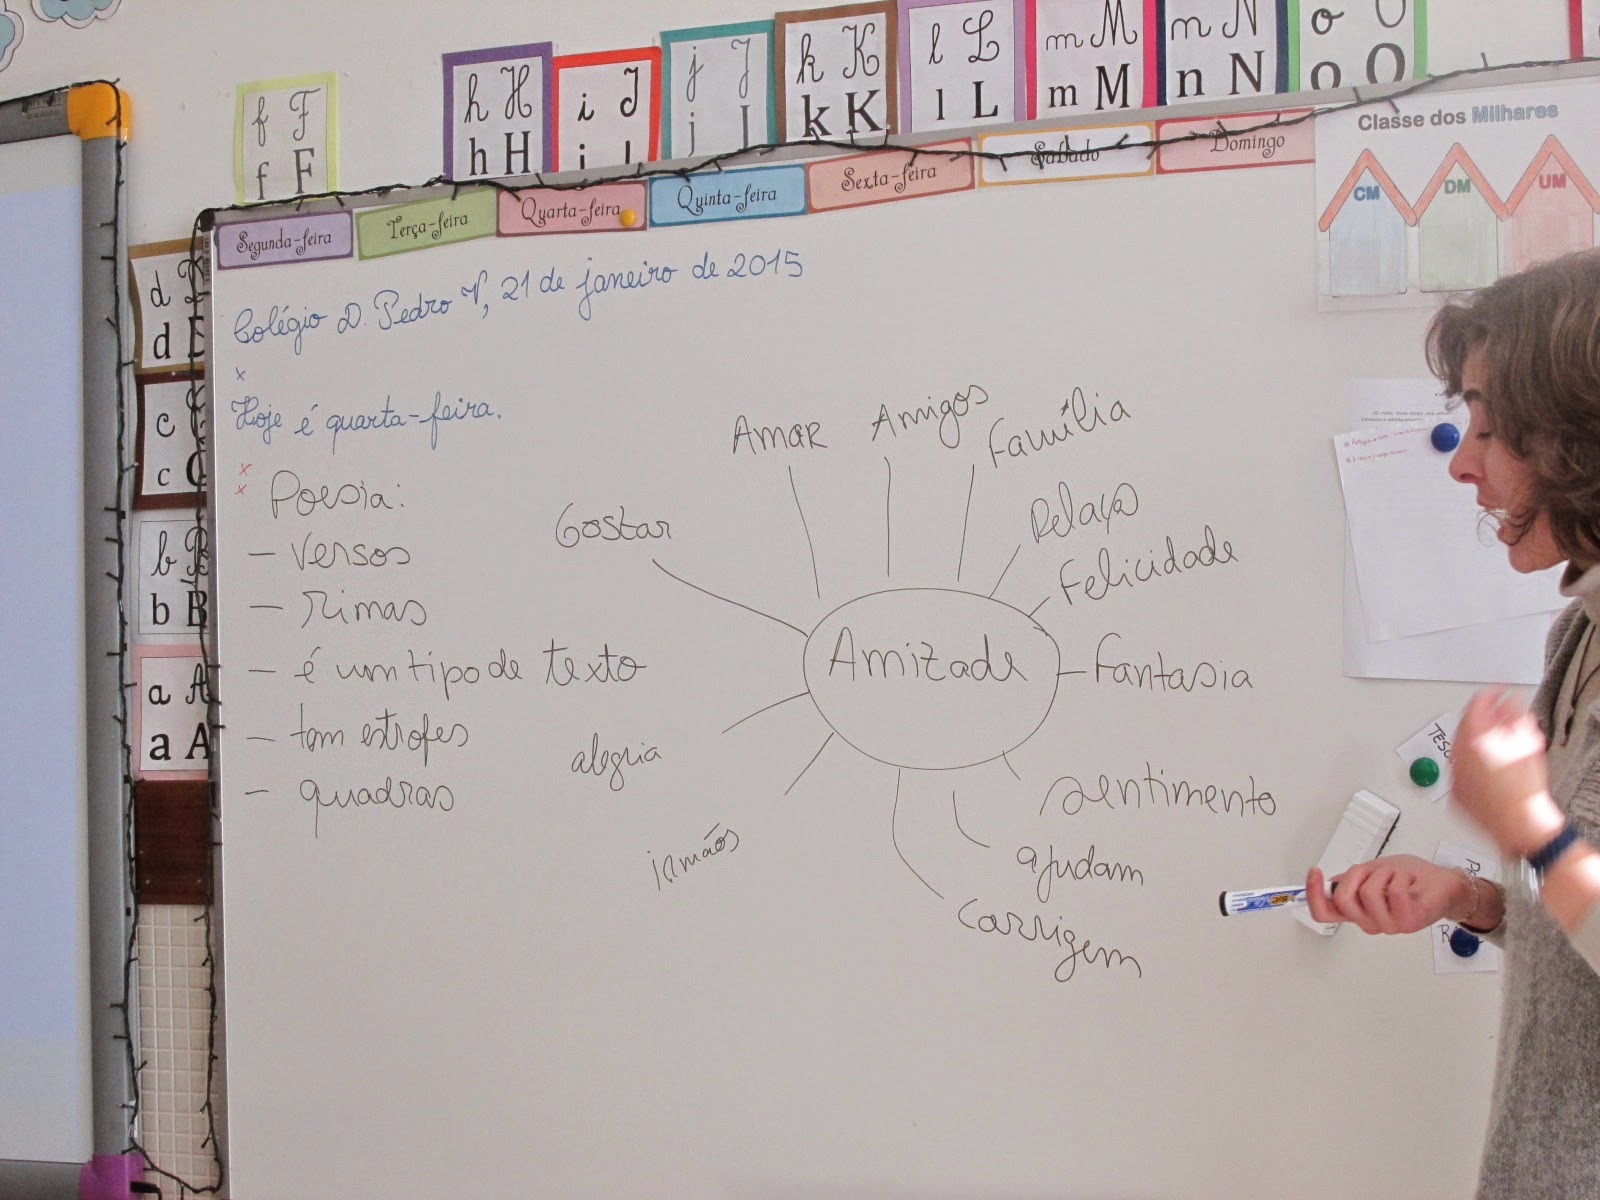 f F
f F
h H
h H
i I
i I
j J
j J
k K
k K
l L
l L
m M
m M
n N
n N
o O
o O
Segunda-feira
Terça-feira
Quarta-feira
Quinta-feira
Sexta-feira
Sábado
Domingo
Classe dos Milhares
CM
DM
UM
d D
d D
c C
c C
b B
b B
a A
a A
Colégio D. Pedro V, 21 de janeiro de 2015
x
Hoje é quarta-feira.
x
x
Poesia:
- versos
- rimas
- é um tipo de texto
- tem estrofes
- quadras
Amizade
Gostar
Amar
Amigos
Família
Relação
Felicidade
Fantasia
sentimento
ajudam
corrigem
irmãos
alegria
BIC